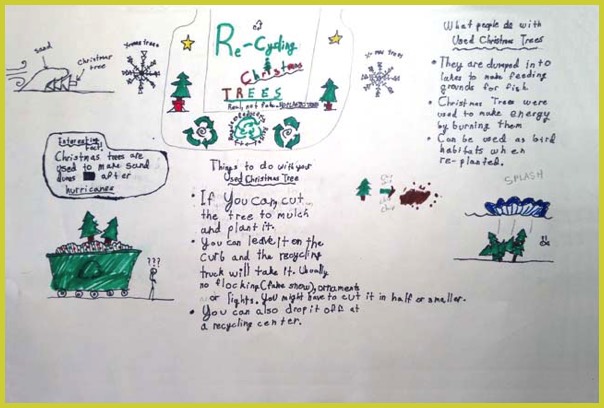 Sand
Christmas
tree
Xmas trees
Re-Cycling
Christmas
TREES
X-mas trees
What people do with
Used Christmas Trees
• They are dumped into
lakes to make feeding
grounds for fish.
• Christmas Trees were
used to make energy
by burning them
• Can be used as bird
habitats when
re-planted.
Interesting
fact!
Christmas trees are
used to make sand
dunes after
hurricanes
Things to do with your
Used Christmas Tree
• If you can, cut
the tree to mulch
and plant it.
• You can leave it on the
curb and the recycling
truck will take it. Usually
no flocking (fake snow), ornaments
or lights. You might have to cut it in half or smaller.
• You can also drop it off at
a recycling center.
SPLASH
???